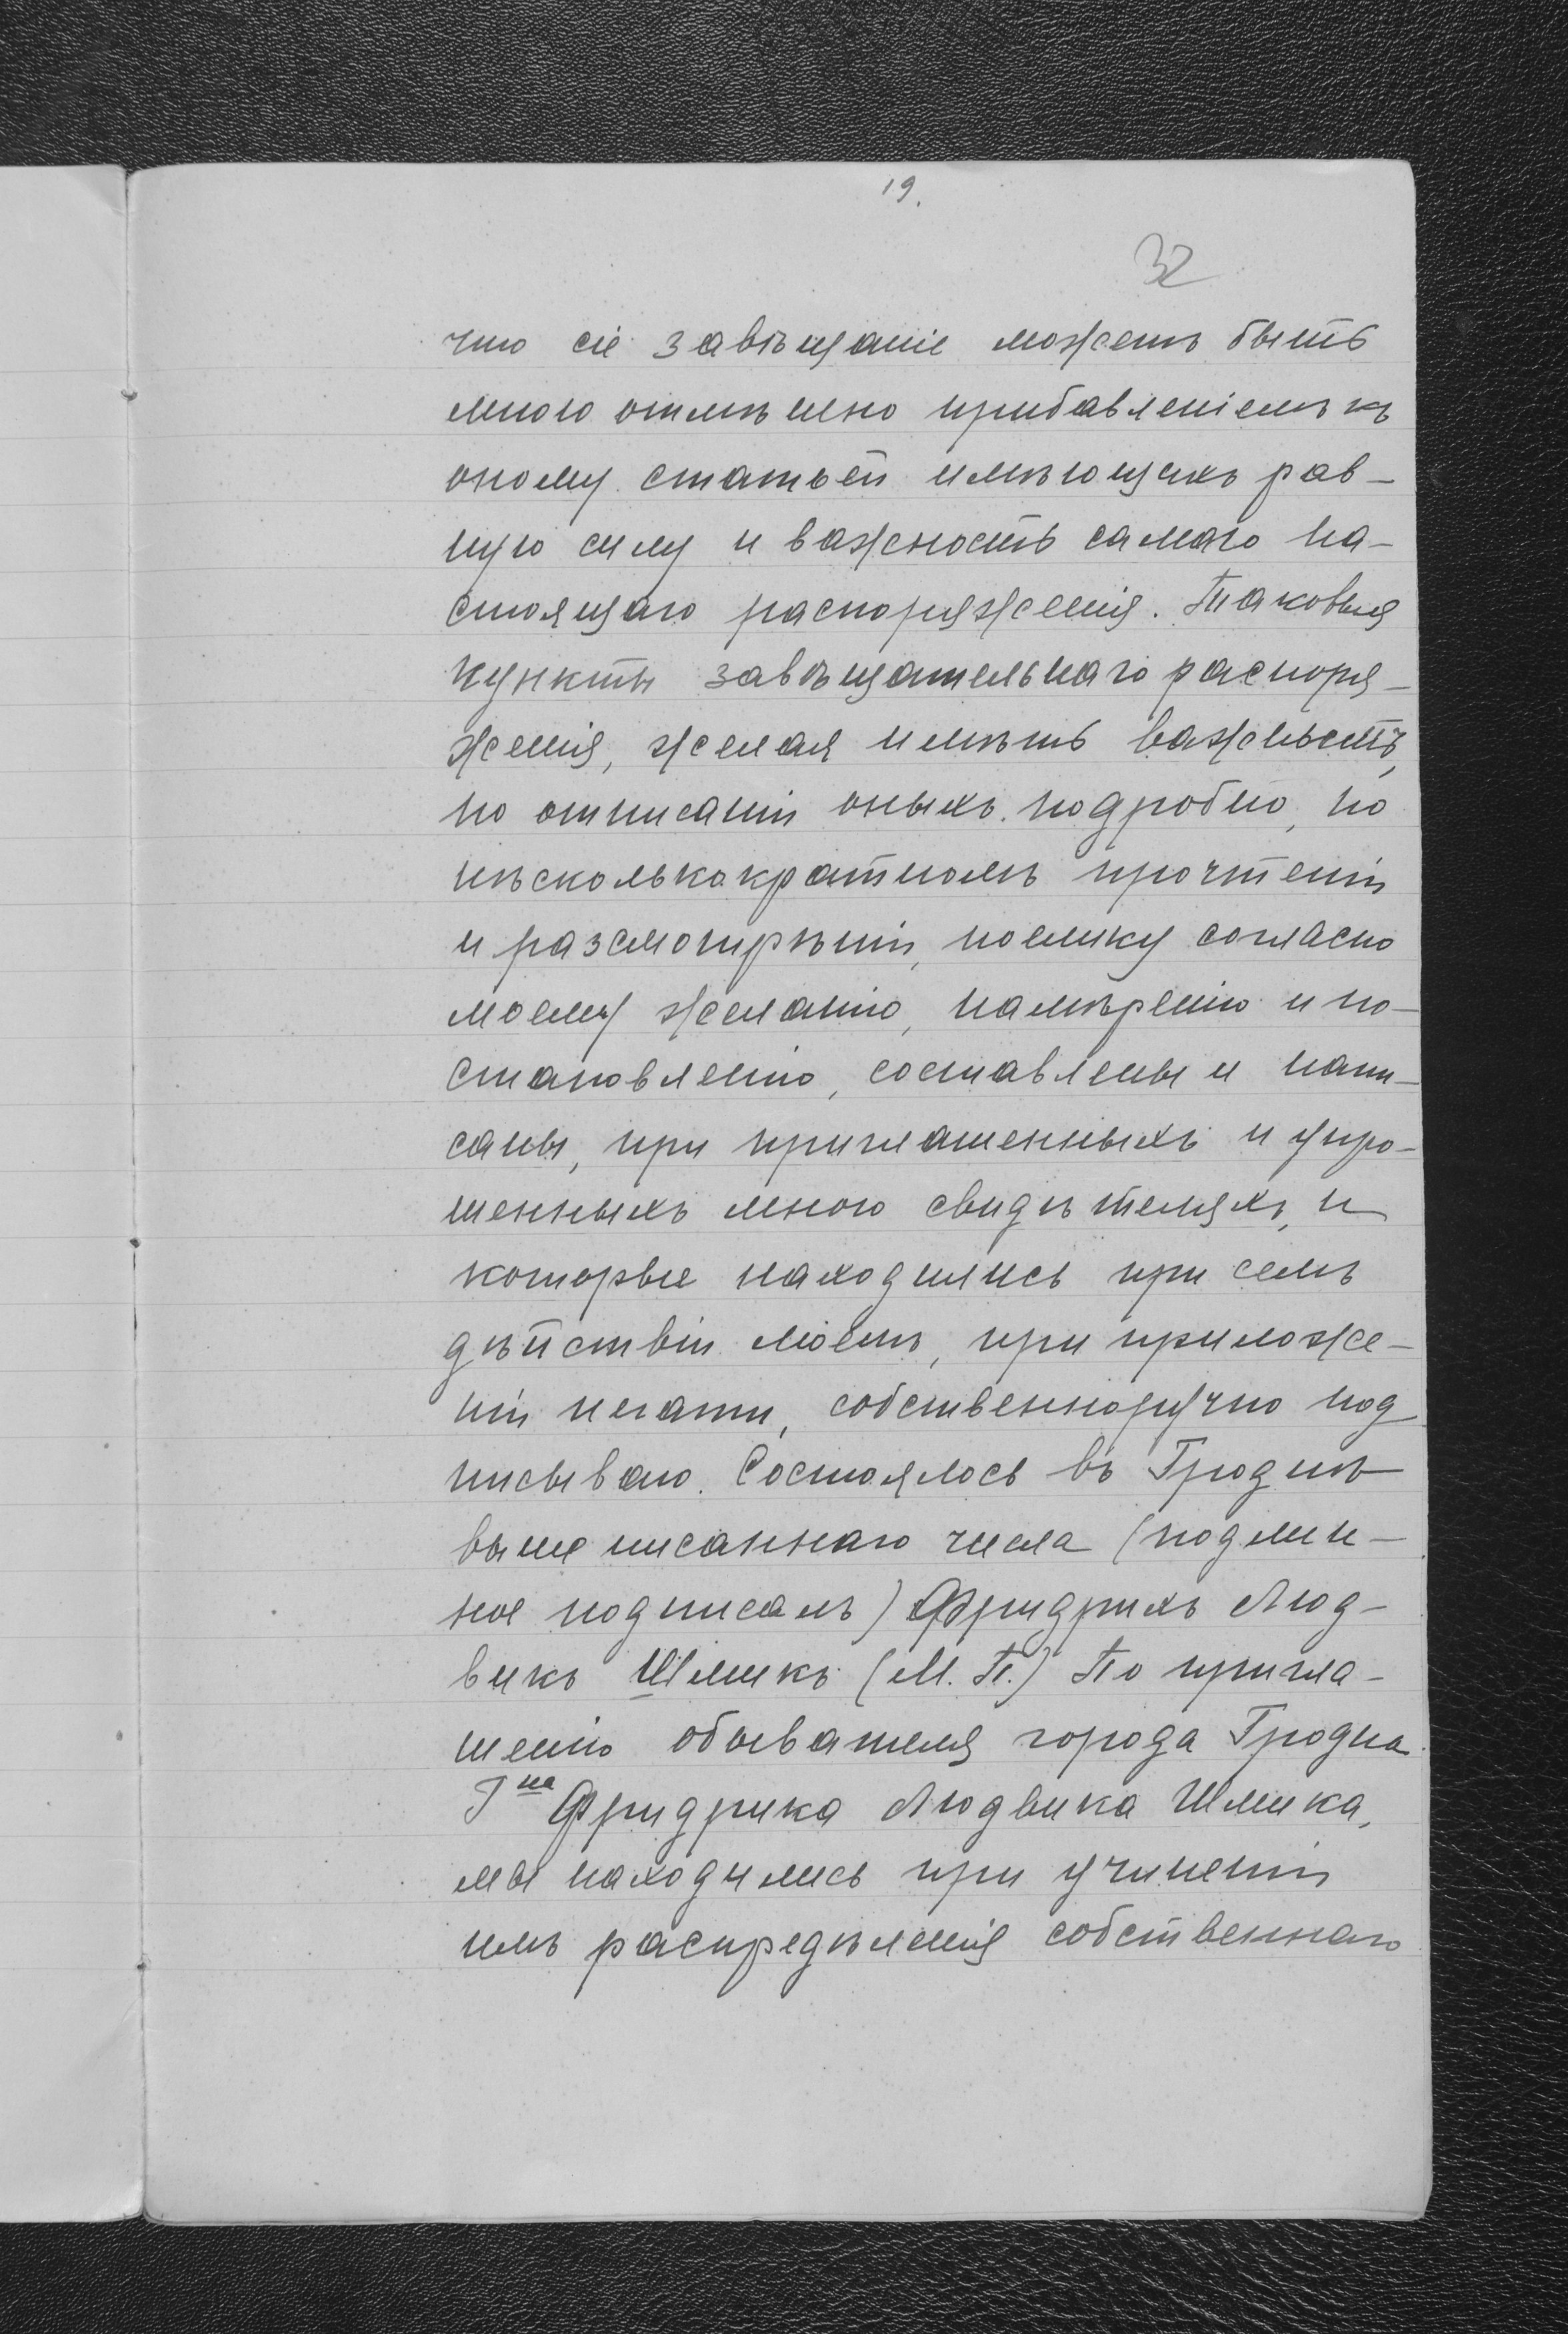 19.
32
что сіе завѣщаніе можетъ быть
мною отмѣнено прибавленіемъ къ
оному статьей имѣющихъ рав-
ную силу и важность самаго на-
стоящаго распоряженія. Таковыя
пункты завѣщательнаго распоря-
женія, желая имѣть важность,
по отписаніи оныхъ подробно, по
нѣсколькократномъ прочтеніи
и разсмотрѣніи, поелику согласно
моему желанію, намѣренію и по-
становленію, составлены и напи-
саны, при приглашенныхъ и упро-
шенныхъ мною свидѣтеляхъ, и
которые находились при семъ
дѣйствіи моемъ, при приложе-
ніи печати, собственноручно под
писываю. Состоялось въ Гроднѣ
выше писаннаго числа (подлин-
ное подписалъ) Фридрихъ Люд-
викъ Шмикъ (М. П.) По пригла-
шенію обывателя города Гродна
Гна Фридриха Людвика Шмика,
мы находились при учиненіи
имъ распредѣленія собственнаго